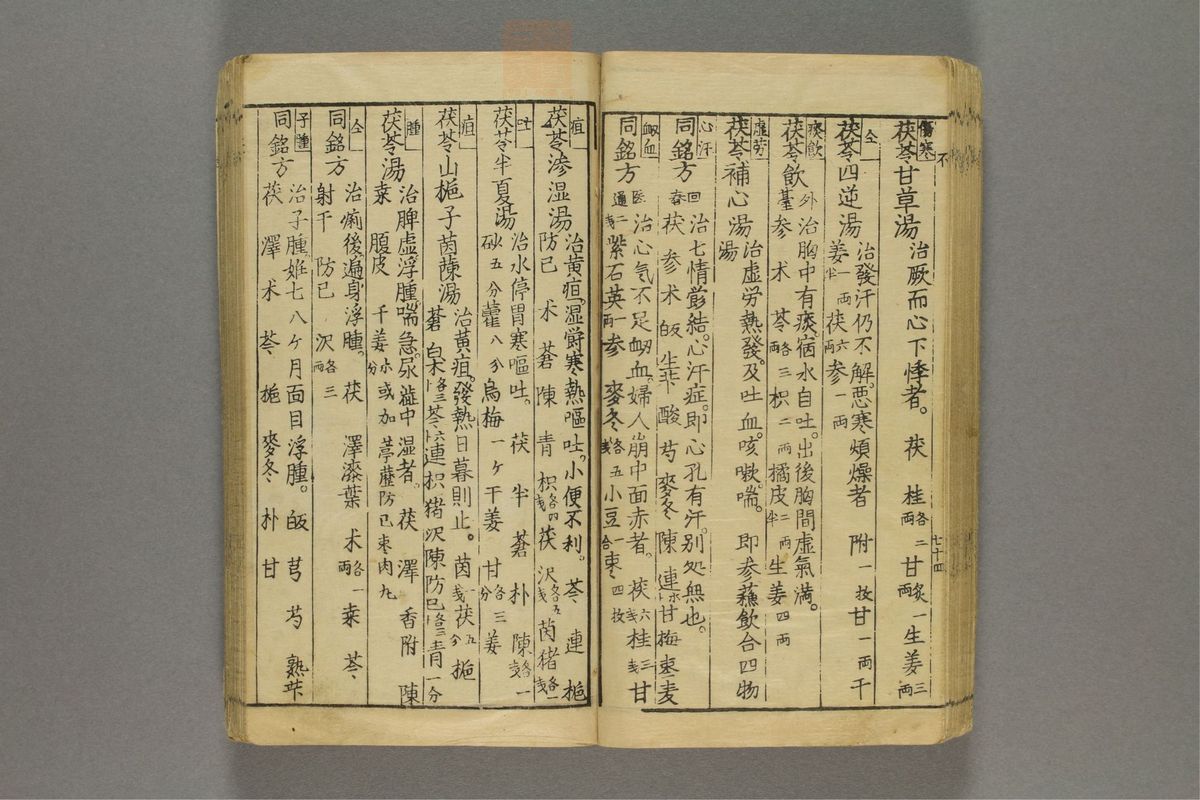 傷寒
茯苓甘草湯 治厥而心下悸者。 茯 桂各二兩 甘炙一兩 生姜三兩
七十四
仝
茯苓四逆湯 治發汗仍不解。惡寒煩燥者 附一枚 甘一兩 干
姜一兩半 茯六兩 参一兩
痰飲
茯苓飲 外臺 治胸中有痰。宿水自吐。出後胸間虛氣滿。
参 术 苓各三兩 枳二兩 橘皮二兩半 生姜四兩
虛劳
茯苓補心湯 治虛労熱發。及吐血。咳嗽。喘。 即参蘓飲合四物
湯
心汗
同銘方 回春 治七情欝結。心汗症。即心孔有汗。別処無也。
茯 参 术 皈 生 酸 芍 麥冬 陳 連 甘 梅 枣 麦
衂血
同銘方 医通 治心気不足衂血。婦人崩中面赤者。 茯六戔 桂三戔 甘
二戔 紫石英一兩 参 麥冬各五戔 小豆一合 枣四枚
疸
茯苓渗湿湯 治黄疸。湿欝寒熱嘔吐。小便不利。 苓 連 梔
防已 术 蒼 陳 青 枳各四戔 茯 沢各五戔 茵 猪各一戔
吐
茯苓半夏湯 治水停胃寒嘔吐。 茯 半 蒼 朴 陳各一戔
砂五分 藿八分 烏梅一ケ 干姜 甘各三分 姜
疸
茯苓山梔子茵蔯湯 治黄疸。發熱日暮則止。 茵一戔 茯五分 梔
蒼 白术各三 苓六 連 枳 猪 沢 陳 防已各三 青一分
腫
茯苓湯 治脾虛浮腫。喘急。尿澁中湿者。 茯 澤 香附 陳
桒 腹皮 干姜 或加 葶藶 防已 枣肉丸
仝
同銘方 治痢後。遍身浮腫。 茯 澤漆葉 术各一兩 桒 苓
射干 防已 沢各三兩
子腫
同銘方 治子腫。姙七八ケ月面目浮腫。 皈 芎 芍 熟
茯 澤 术 苓 梔 麥冬 朴 甘